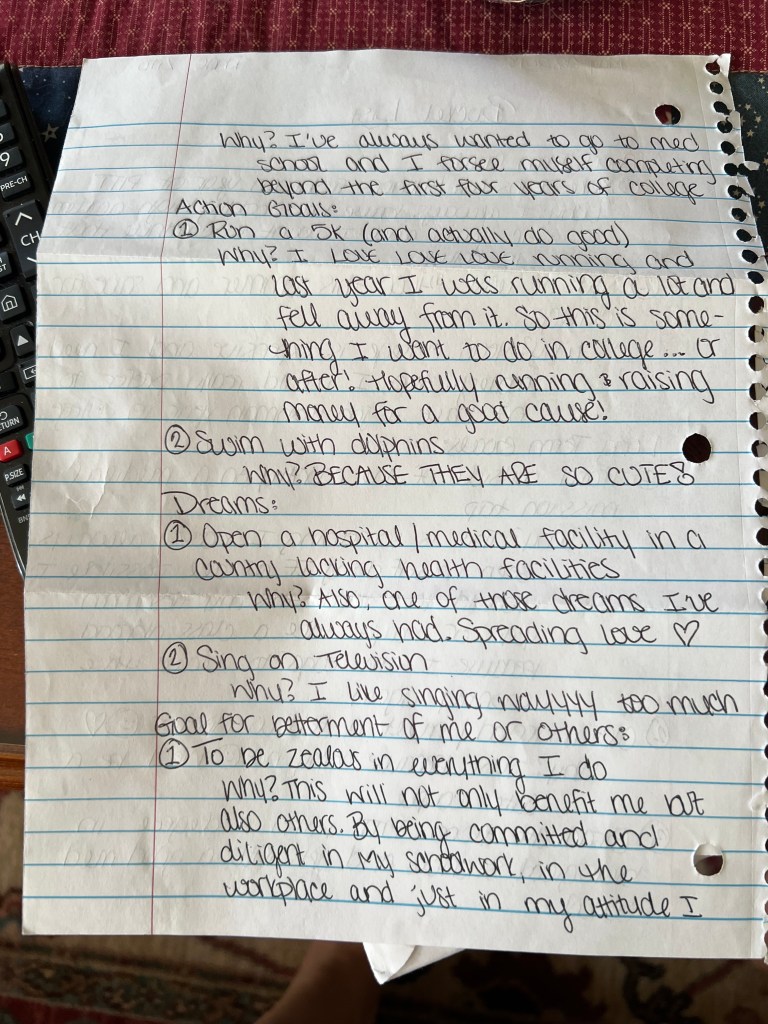 Why? I've always wanted to go to med
school and I forsee myself competing
beyond the first four years of college
Action Goals:
① Run a 5K (and actually do good)
Why? I LOVE LOVE LOVE running and
last year I was running a lot and
fell away from it. So this is some-
thing I want to do in college... or
after! Hopefully running & raising
money for a good cause!
② Swim with dolphins
Why? BECAUSE THEY ARE SO CUTE!
Dreams:
① Open a hospital/medical facility in a
country lacking health facilities
Why? Also, one of those dreams I've
always had. Spreading love ♡
② Sing on Television
Why? I like singing wayyyy too much
Goal for betterment of me or others:
① To be zealous in everything I do
Why? This will not only benefit me but
also others. By being committed and
diligent in my schoolwork, in the
workplace and just in my attitude I
9
PRE-CH
CH
P.SIZE
A